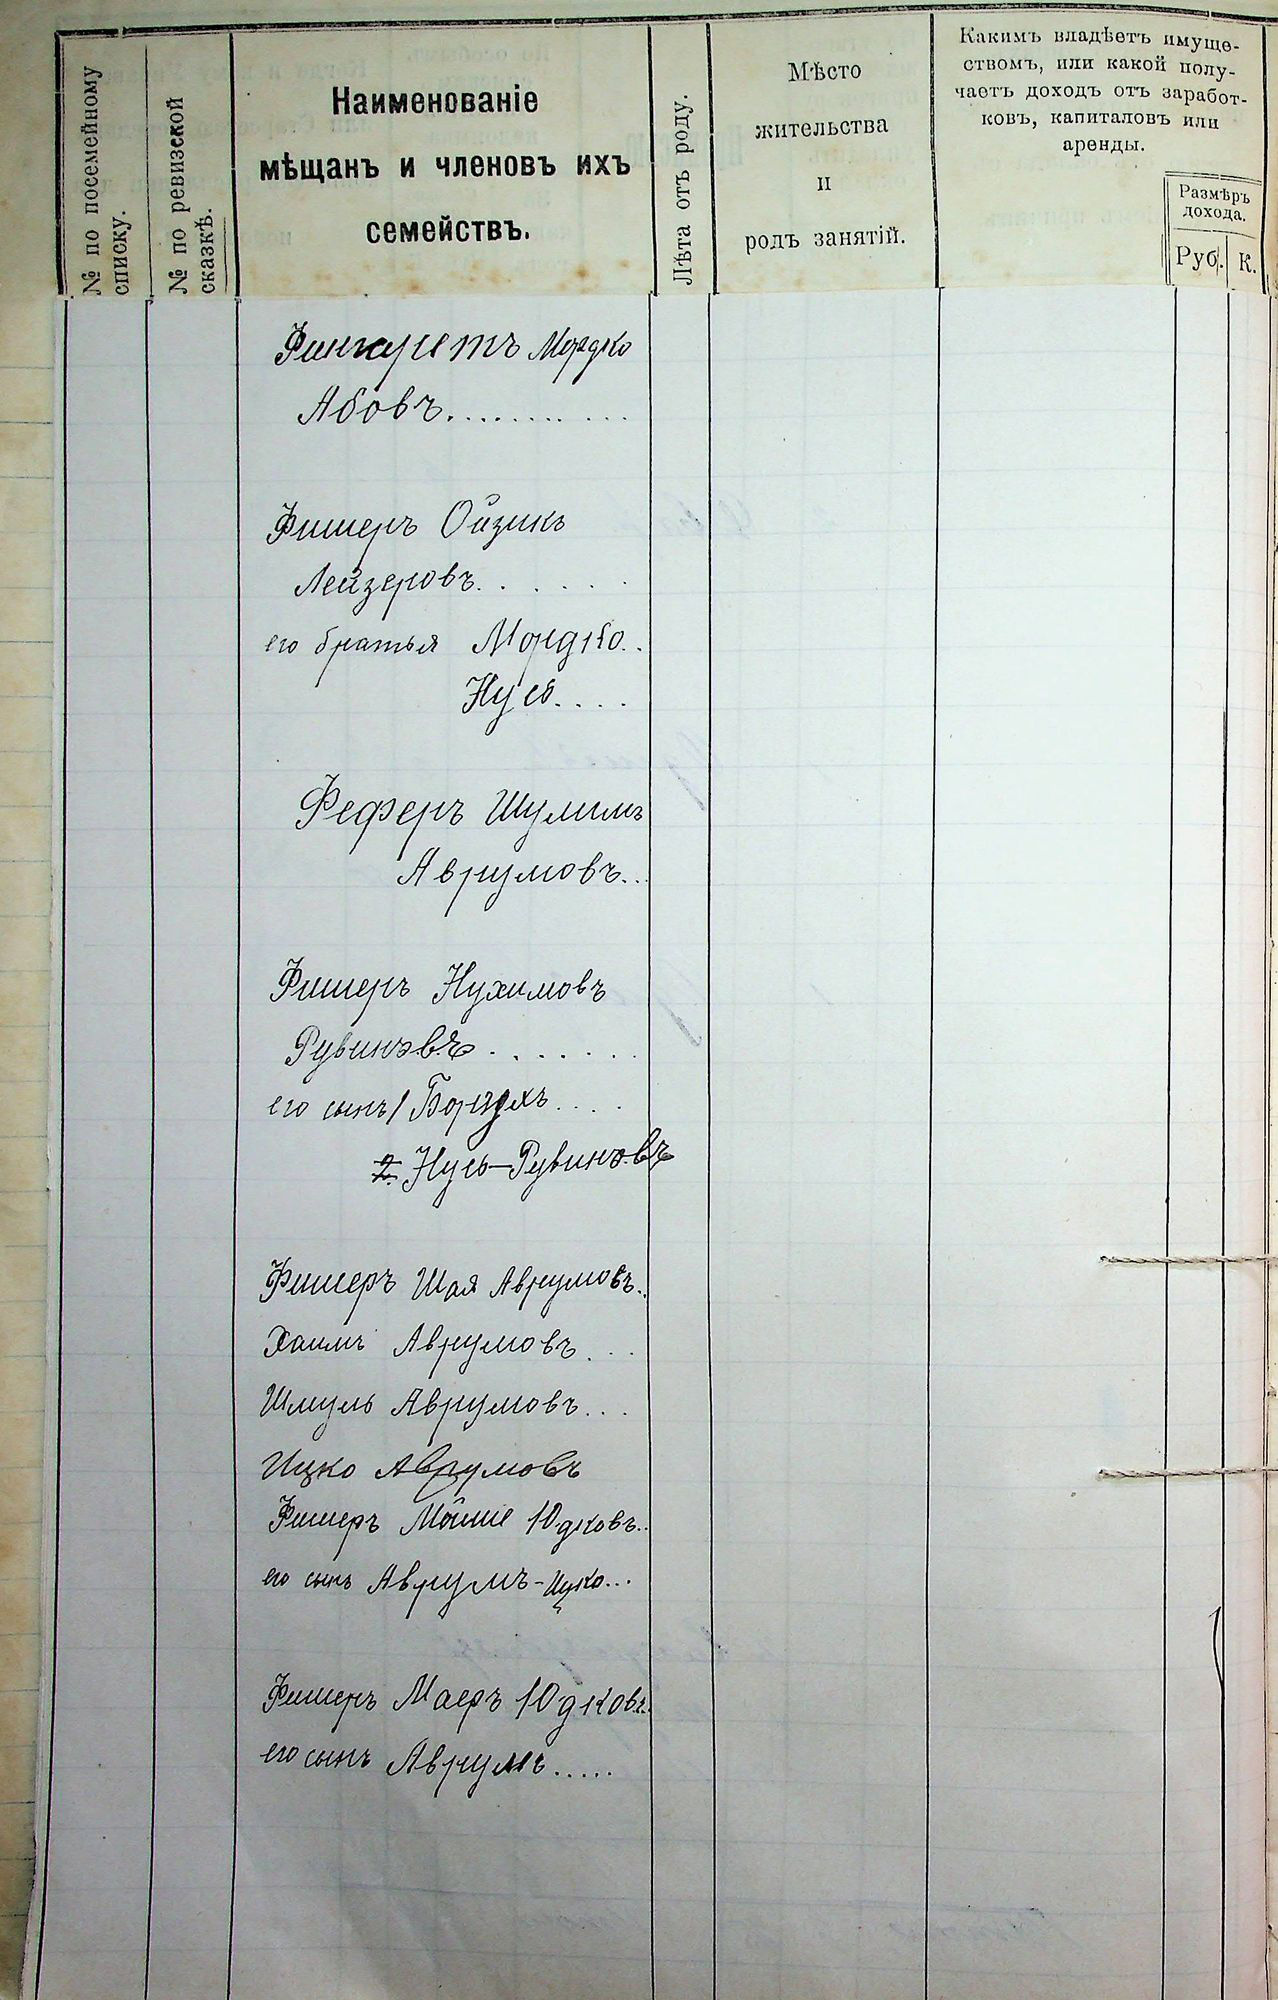 № по посемейному
списку.
№ по ревизской
сказкѣ.
Наименованіе
мѣщанъ и членовъ ихъ
семействъ.
Лѣта отъ роду.
Мѣсто
жительства
и
родъ занятій.
Какимъ владѣетъ имуще-
ствомъ, или какой полу-
чаетъ доходъ отъ заработ-
ковъ, капиталовъ или
аренды.
Размѣръ
дохода.
Руб. К.
Фингаретъ Мордко
Абовъ...........
Фишеръ Ойзикъ
Лейзеровъ......
его братья Мордко..
Нусь....
Феферъ Шулимъ
Аврумовъ...
Фишеръ Нухимовъ
Рувиновъ.......
его сынъ 1 Борухъ....
2. Нусь-Рувиновъ
Фишеръ Шая Аврумовъ..
Хаимъ Аврумовъ...
Шмуль Аврумовъ...
Ицко Аврумовъ
Фишеръ Мойше Юдковъ..
его сынъ Аврумъ-Ицко...
Фишеръ Маеръ Юдковъ..
его сынъ Аврумъ.....